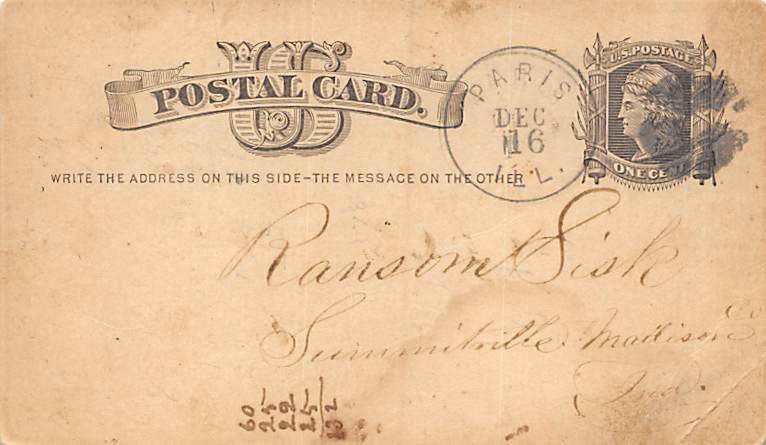 US
POSTAL CARD.
PARIS
DEC
16
ILL.
U.S. POSTAGE
ONE CENT
WRITE THE ADDRESS ON THIS SIDE-THE MESSAGE ON THE OTHER
Ransom Sisk
Summitville Madison Co
Ind.
60
25
22
25
132